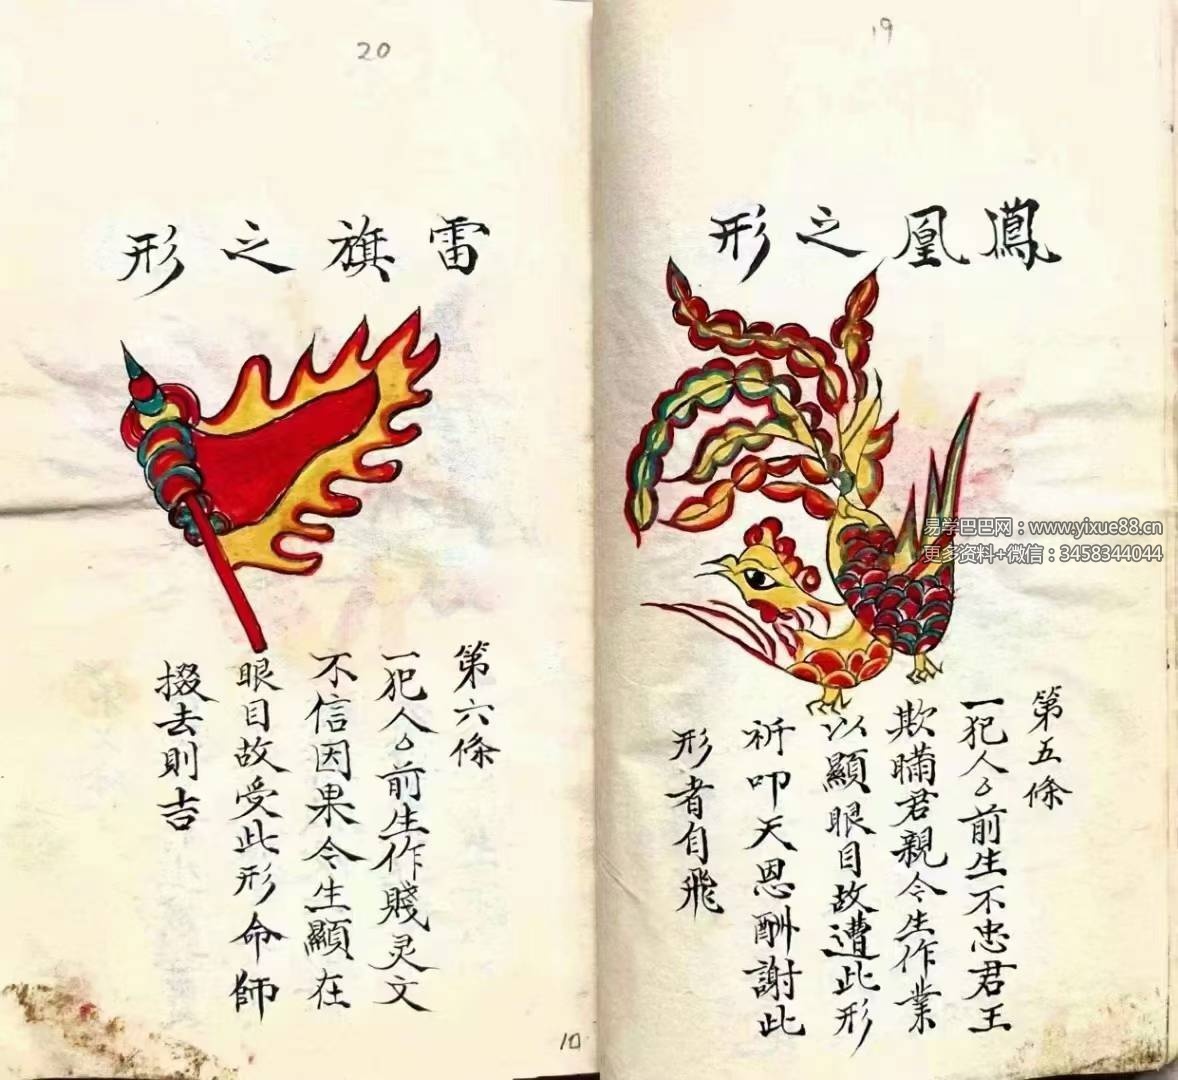 19
鳳凰之形
第五條
一犯人前生不忠君王
欺瞞君親令生作業
以顯眼目故遭此形
祈叩天恩酬謝此
形者自飛
易学巴巴网：www.yixue88.cn
更多资料+微信：3458344044
20
雷旗之形
第六條
一犯人前生作賤灵文
不信因果令生顯在
眼目故受此形命師
掇去則吉
10